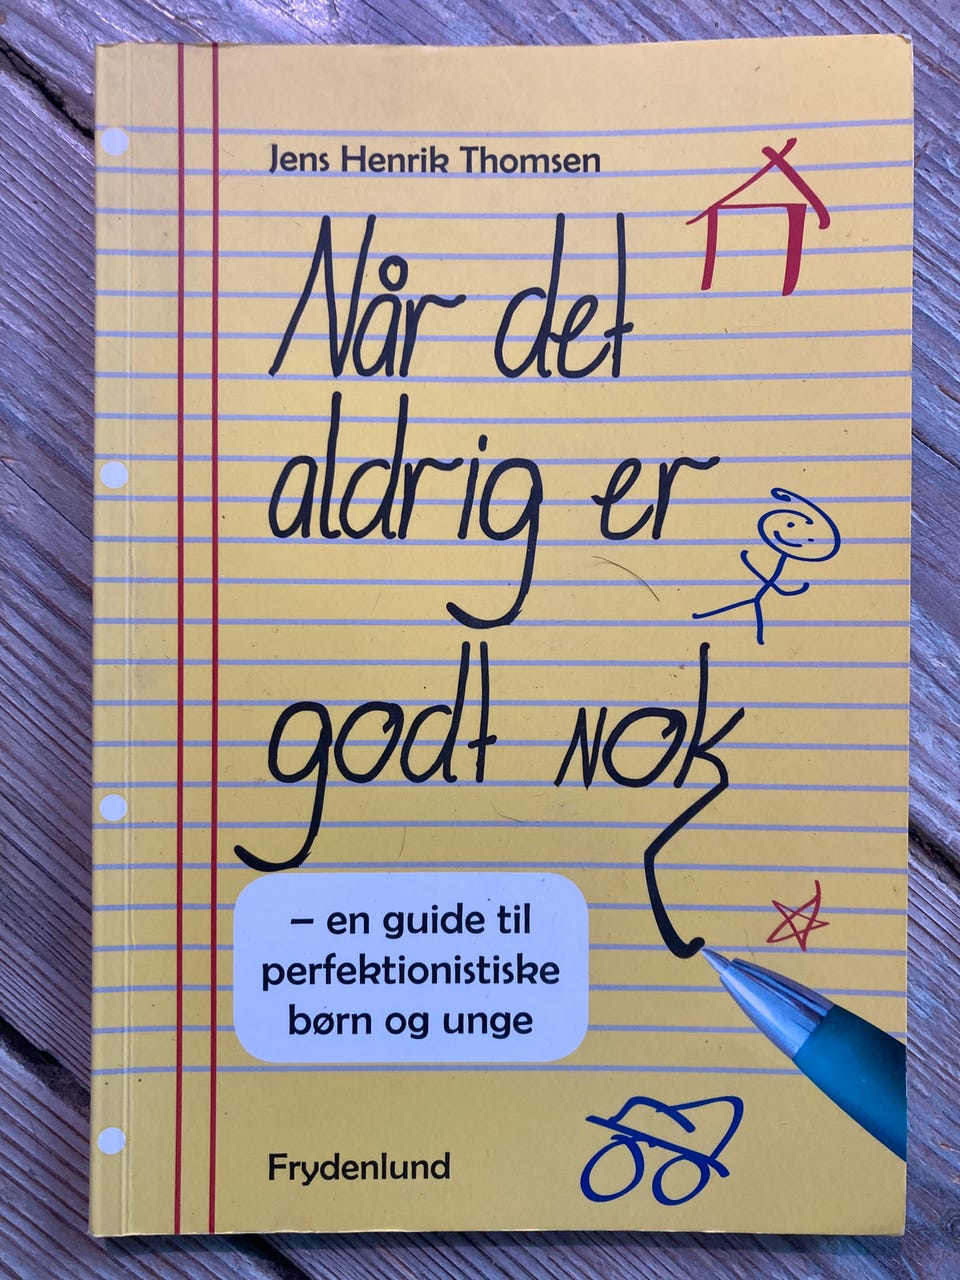 Jens Henrik Thomsen
Når det
aldrig er
godt nok
– en guide til
perfektionistiske
børn og unge
Frydenlund